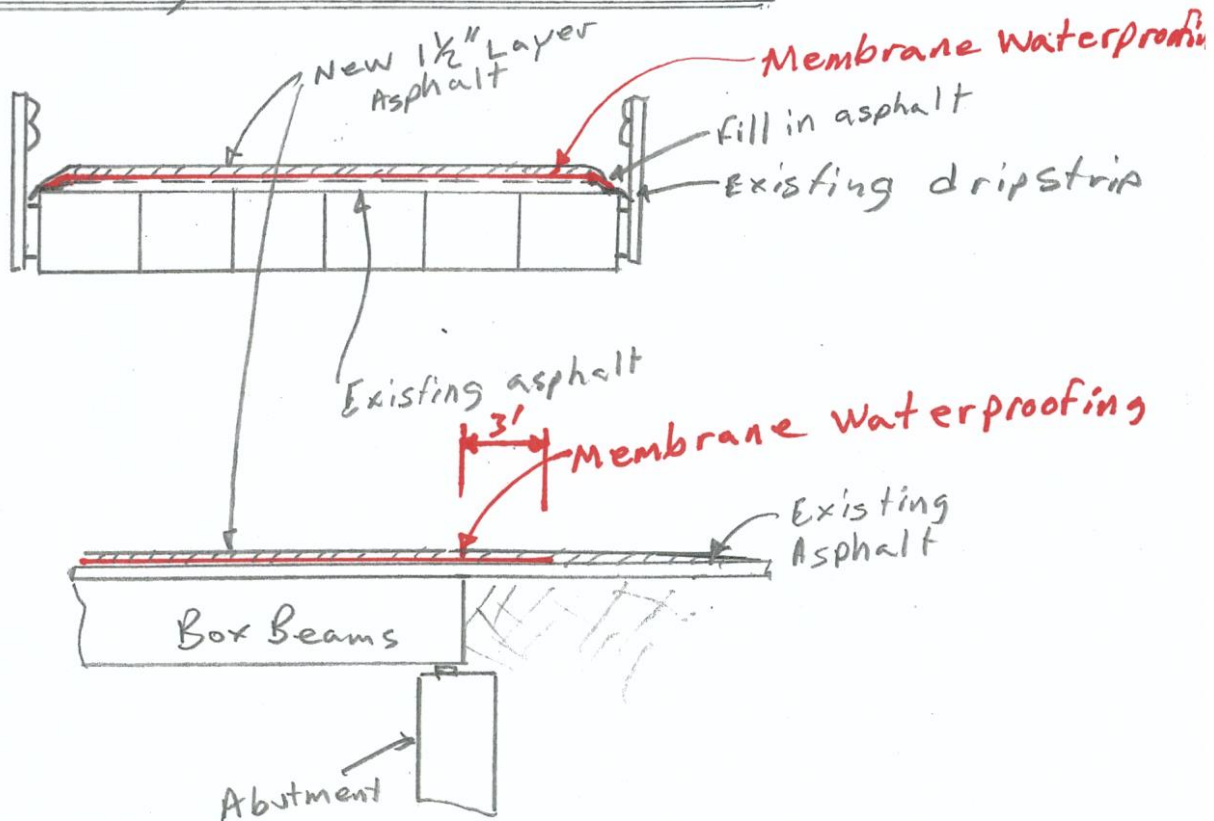 New 1½" Layer
Asphalt
Membrane Waterproofin
fill in asphalt
Existing dripstrip
Existing asphalt
3'
Membrane Waterproofing
Existing
Asphalt
Box Beams
Abutment